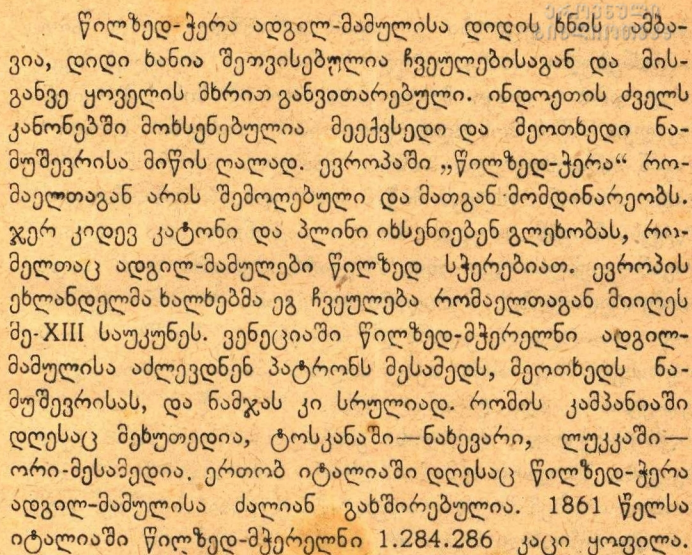 წილზედ-ჭერა ადგილ-მამულისა დიდის ხნის ამბა-
ვია, დიდი ხანია შეთვისებულია ჩვეულებისაგან და მის-
განვე ყოველის მხრით განვითარებული. ინდოეთის ძველს
კანონებში მოხსენებულია მეექვსედი და მეოთხედი ნა-
მუშევრისა მიწის ღალად. ევროპაში „წილზედ-ჭერა“ რო-
მაელთაგან არის შემოღებული და მათგან მომდინარეობს.
ჯერ კიდევ კატონი და პლინი იხსენიებენ გლეხობას, რო-
მელთაც ადგილ-მამულები წილზედ სჭერებიათ. ევროპის
ეხლანდელმა ხალხებმა ეგ ჩვეულება რომაელთაგან მიიღეს
მე-XIII საუკუნეს. ვენეციაში წილზედ-მჭერელნი ადგილ-
მამულისა აძლევდნენ პატრონს მესამედს, მეოთხედს ნა-
მუშევრისას, და ნამჯას კი სრულიად. რომის კამპანიაში
დღესაც მეხუთედია, ტოსკანაში—ნახევარი, ლუკკაში—
ორი-მესამედია. ერთობ იტალიაში დღესაც წილზედ-ჭერა
ადგილ-მამულისა ძალიან გახშირებულია. 1861 წელსა
იტალიაში წილზედ-მჭერელნი 1.284.286 კაცი ყოფილა.